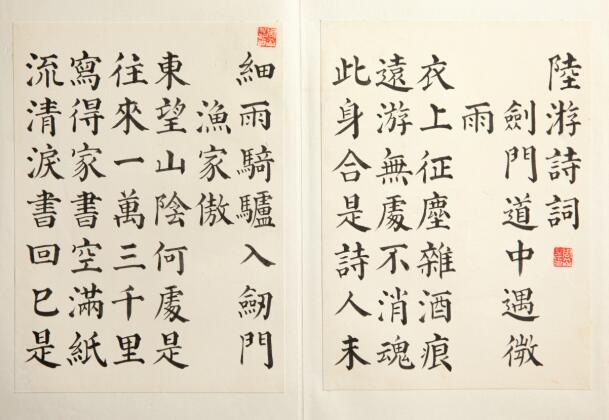 陸游詩詞
劍門道中遇微
雨
衣上征塵雜酒痕
遠游無處不消魂
此身合是詩人未
細雨騎驢入劒門
漁家傲
東望山陰何處是
往來一萬三千里
寫得家書空滿紙
流清淚書回已是